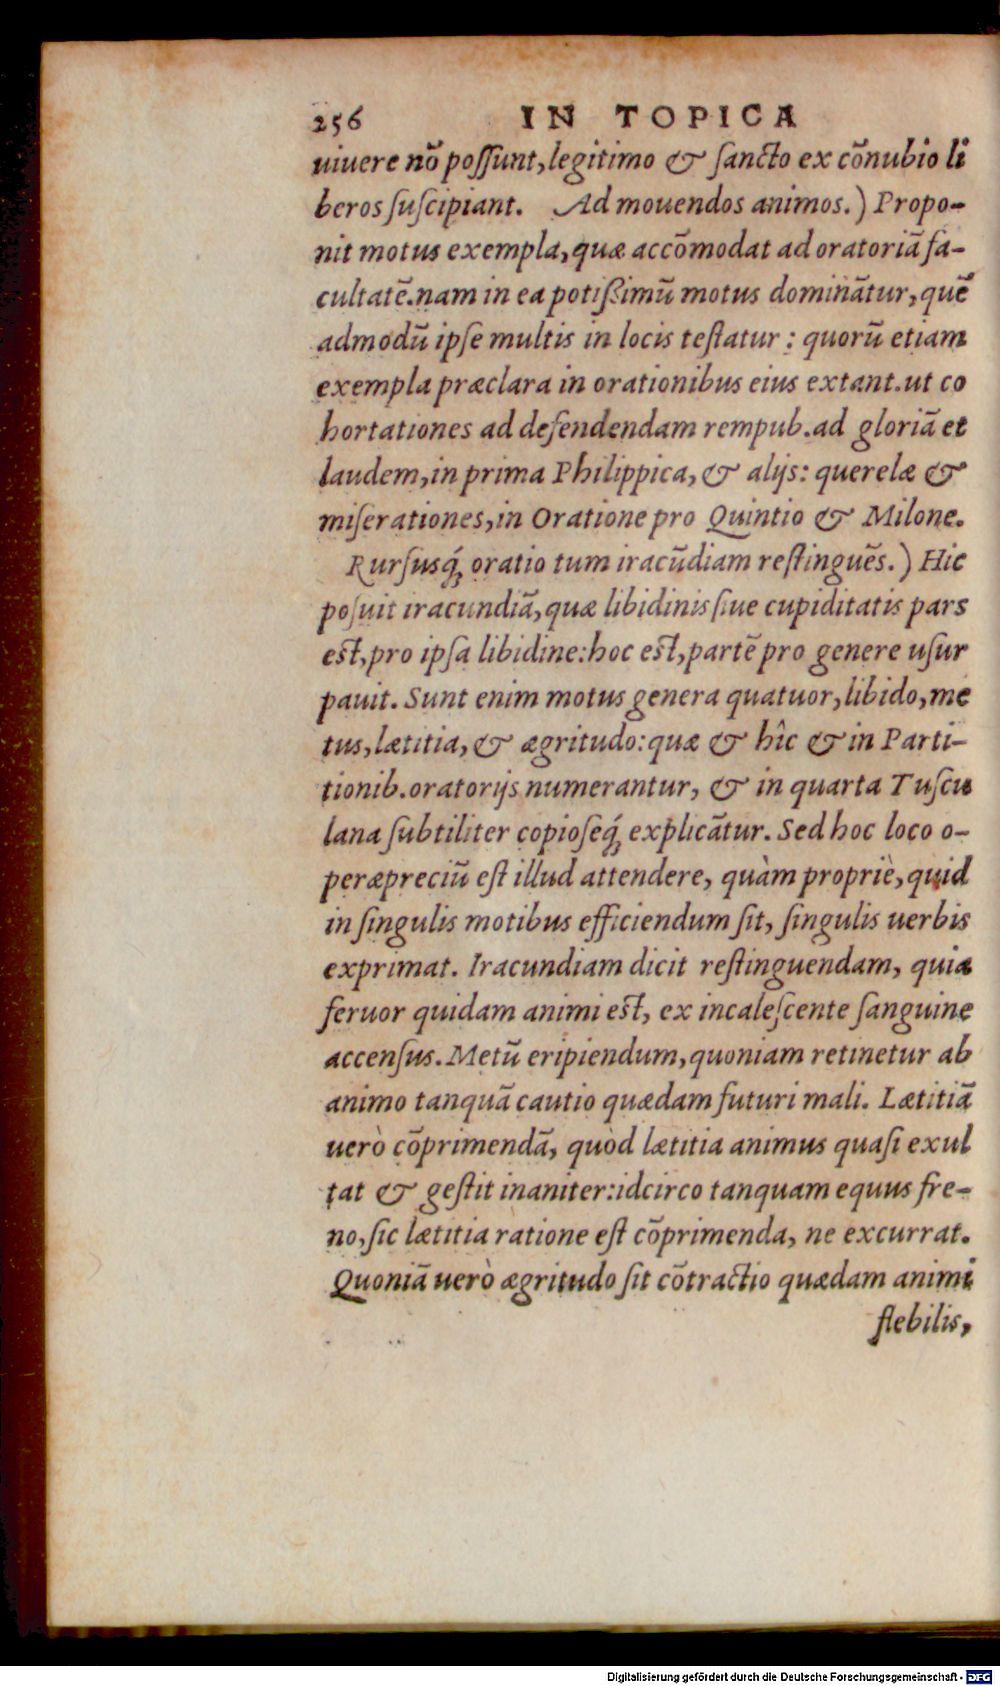 256 IN TOPICA
uiuere nõ possunt, legitimo & sancto ex cõnubio li
beros suscipiant. Ad mouendos animos.) Propo-
nit motus exempla, quæ accõmodat ad oratoriã fa-
cultatẽ. nam in ea potißimũ motus dominãtur, quẽ
admodũ ipse multis in locis testatur: quorũ etiam
exempla præclara in orationibus eius extant. ut co
hortationes ad defendendam rempub. ad gloriã et
laudem, in prima Philippica, & alijs: querelæ &
miserationes, in Oratione pro Quintio & Milone.
Rursusq́; oratio tum iracũdiam restinguẽs.) Hic
posuit iracundiã, quæ libidinis siue cupiditatis pars
est, pro ipsa libidine: hoc est, partẽ pro genere usur
pauit. Sunt enim motus genera quatuor, libido, me
tus, lætitia, & ægritudo: quæ & hîc & in Parti-
tionib. oratorijs numerantur, & in quarta Tuscu
lana subtiliter copioseq́; explicãtur. Sed hoc loco o-
peræpreciũ est illud attendere, quàm propriè, quid
in singulis motibus efficiendum sit, singulis uerbis
exprimat. Iracundiam dicit restinguendam, quia
feruor quidam animi est, ex incalescente sanguine
accensus. Metũ eripiendum, quoniam retinetur ab
animo tanquã cautio quædam futuri mali. Lætitiã
uerò cõprimendã, quòd lætitia animus quasi exul
tat & gestit inaniter: idcirco tanquam equus fre-
no, sic lætitia ratione est cõprimenda, ne excurrat.
Quoniã uerò ægritudo sit cõtractio quædam animi
flebilis,
Digitalisierung gefördert durch die Deutsche Forschungsgemeinschaft - DFG